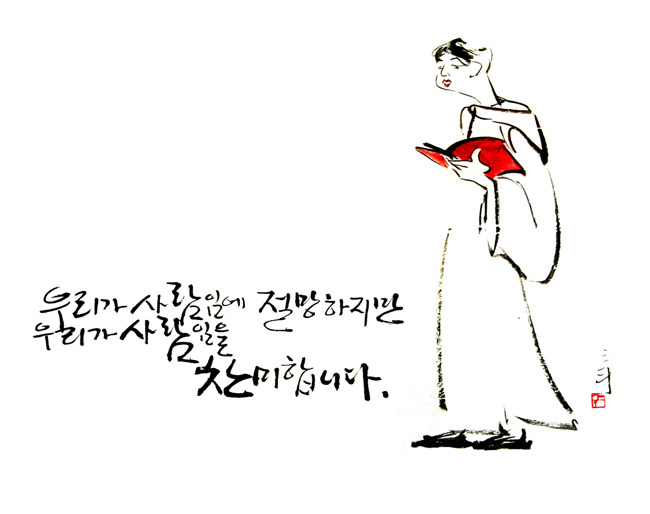 우리가 사람임에 절망하지만
우리가 사람임을
찬미합니다.